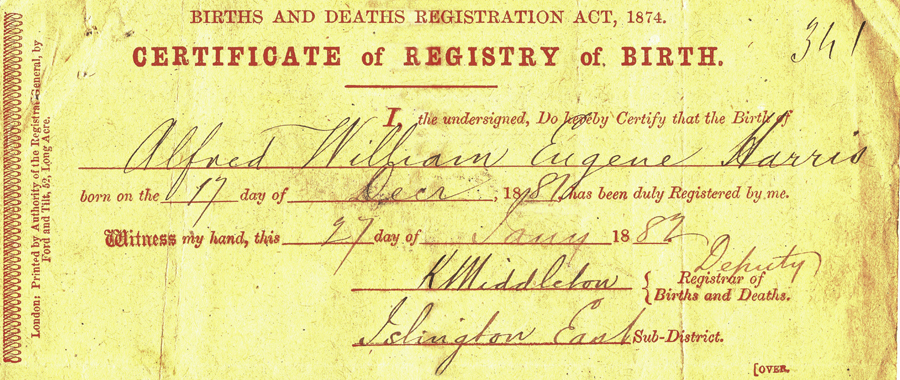 BIRTHS AND DEATHS REGISTRATION ACT, 1874.
341
CERTIFICATE of REGISTRY of BIRTH.
I the undersigned, Do hereby Certify that the Birth of
Alfred William Eugene Harris
born on the 17 day of Decr, 1881, has been duly Registered by me.
Witness my hand, this 27 day of Jany 1882
Deputy
Middleton Registrar of
Births and Deaths.
Islington East Sub-District.
[OVER.
London: Printed by Authority of the Registrar General, by
Ford and Tilt, 52, Long Acre.